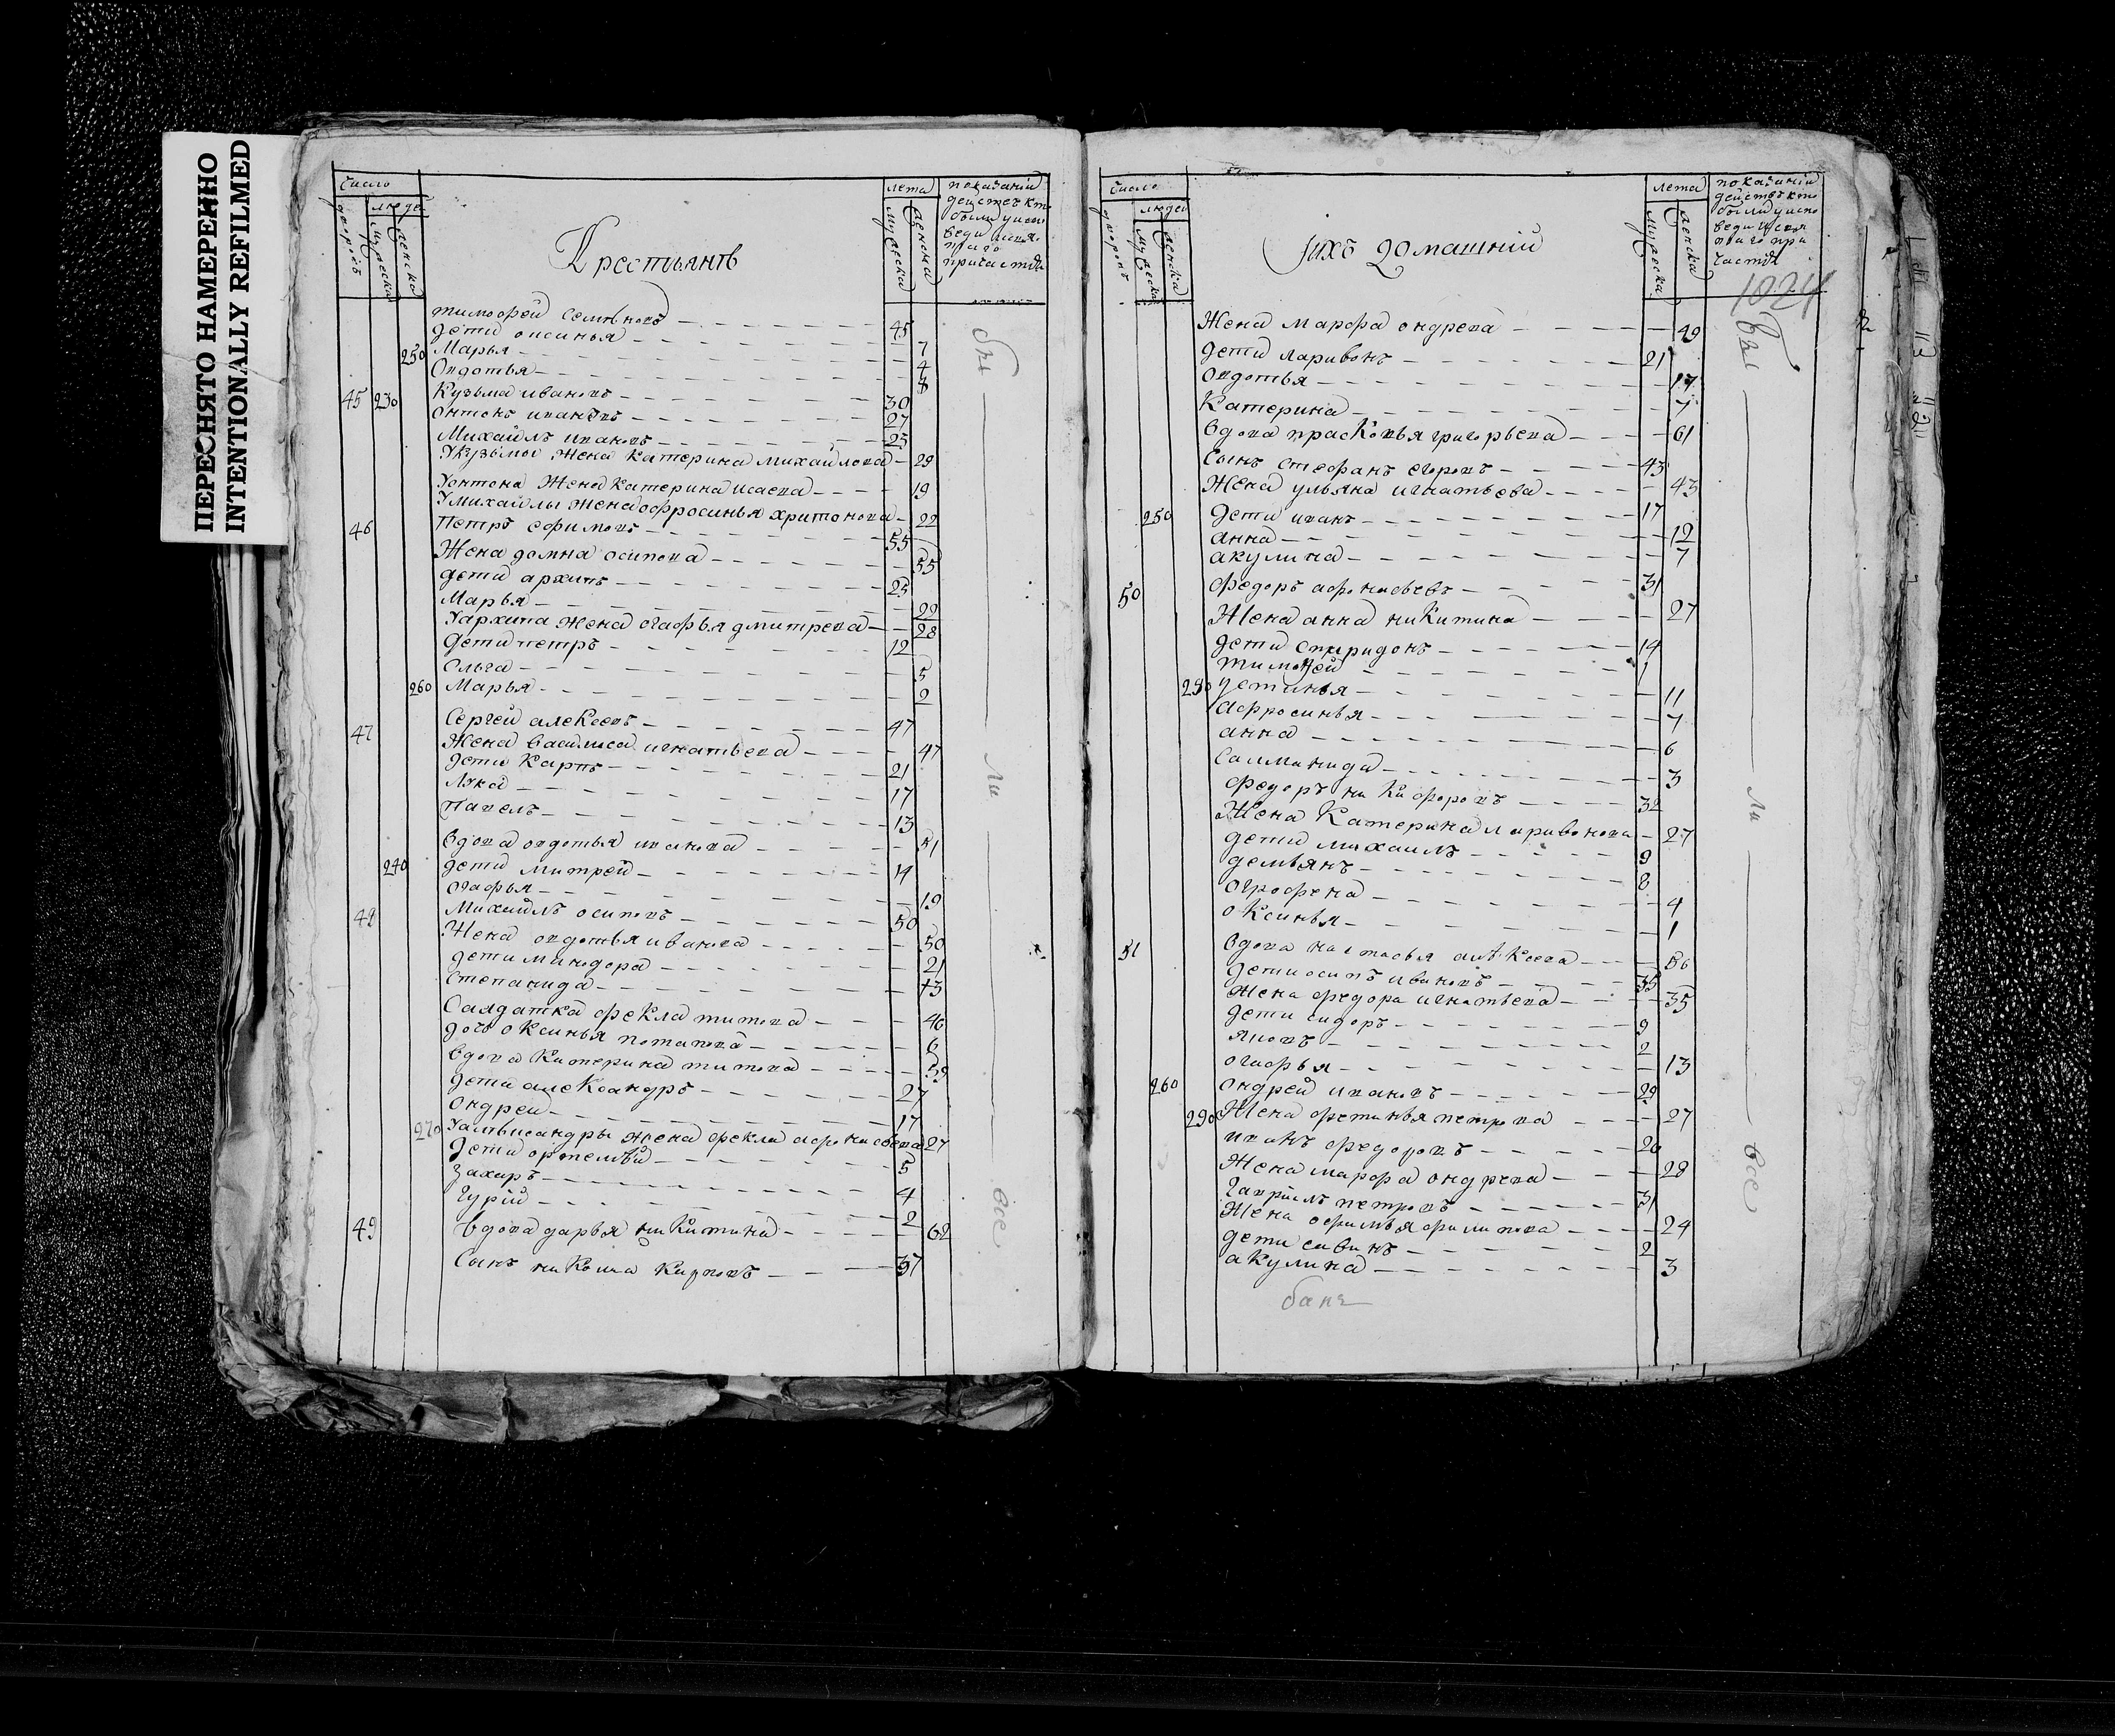 ПЕРЕСНЯТО НАМЕРЕННО
INTENTIONALLY REFILMED
число
дворовъ
людей
мужеска
женска
Крестьянъ
лета
мужеска
женска
тимофей семѣновъ 45
дети оксинья 7
250 Марья 4
Овдотья 8
45 230 Кузьма ивановъ 30
онтонъ ивановъ 27
Михайлъ ивановъ 25
Укузьмы Жена катерина михайлова 29
Уонтона Жена катерина исаева 19
Умихайлы Жена офросинья хритонова 22
46 Петръ ефимовъ 55
Жена домна осипова 55
дети архипъ 25
Марья 22
Уархипа Жена огафья дмитрева 28
дети петръ 12
Ольга 5
260 Марья 2
47 Сергей алексеевъ 47
Жена василиса игнатьева 47
дети Карпъ 21
Лука 17
Павелъ 13
вдова овдотья иванова 51
240 дети митрей 14
огафья 19
48 Михайлъ осиповъ 50
Жена овдотья иванова 50
дети минодора 21
Степанида 13
Салдатка фекла титова 46
дочь оксинья потапова 6
вдова Катерина титова 59
дети александръ 27
Ондрей 17
270 Уалександры Жена фекла афонасьева 27
дети ортемѣй 5
Захаръ 4
Гурiй 2
49 вдова дарья никитина 62
Сынъ никита карповъ 37
бы ли все
число
дворовъ
людей
мужеска
женска
Jихъ домашнiй
лета
мужеска
женска
1024
Жена марфа ондрева 49
дети ларивонъ 21
Овдотья 17
Катерина 7
вдова прасковья григорьева 61
Сынъ стефанъ егоровъ 43
Жена ульяна игнатьева 43
250 дети иванъ 17
анна 12
акулина 7
50 федоръ афонасьевъ 31
Жена анна никитина 27
дети спиридонъ 14
тимофей 1
280 устинья 11
Афросинья 7
анна 6
Саломанида 3
федоръ никифоровъ 32
Жена Катерина ларивонова 27
дети михаилъ 9
демьянъ 8
огрофена 4
оксинья 1
51 вдова настасья алѣксеева 56
дети осипъ ивановъ 35
Жена федора игнатьева 35
дети сидоръ 9
яковъ 2
огафья 13
260 ондрей ивановъ 29
290 Жена фетинья петрова 27
иванъ федоровъ 20
Жена марфа ондрева 28
Гаврiилъ петровъ 31
Жена офимья филипова 24
дети савинъ 2
акулина 3
бы ли все